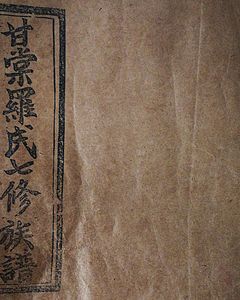 甘棠羅氏七修族譜